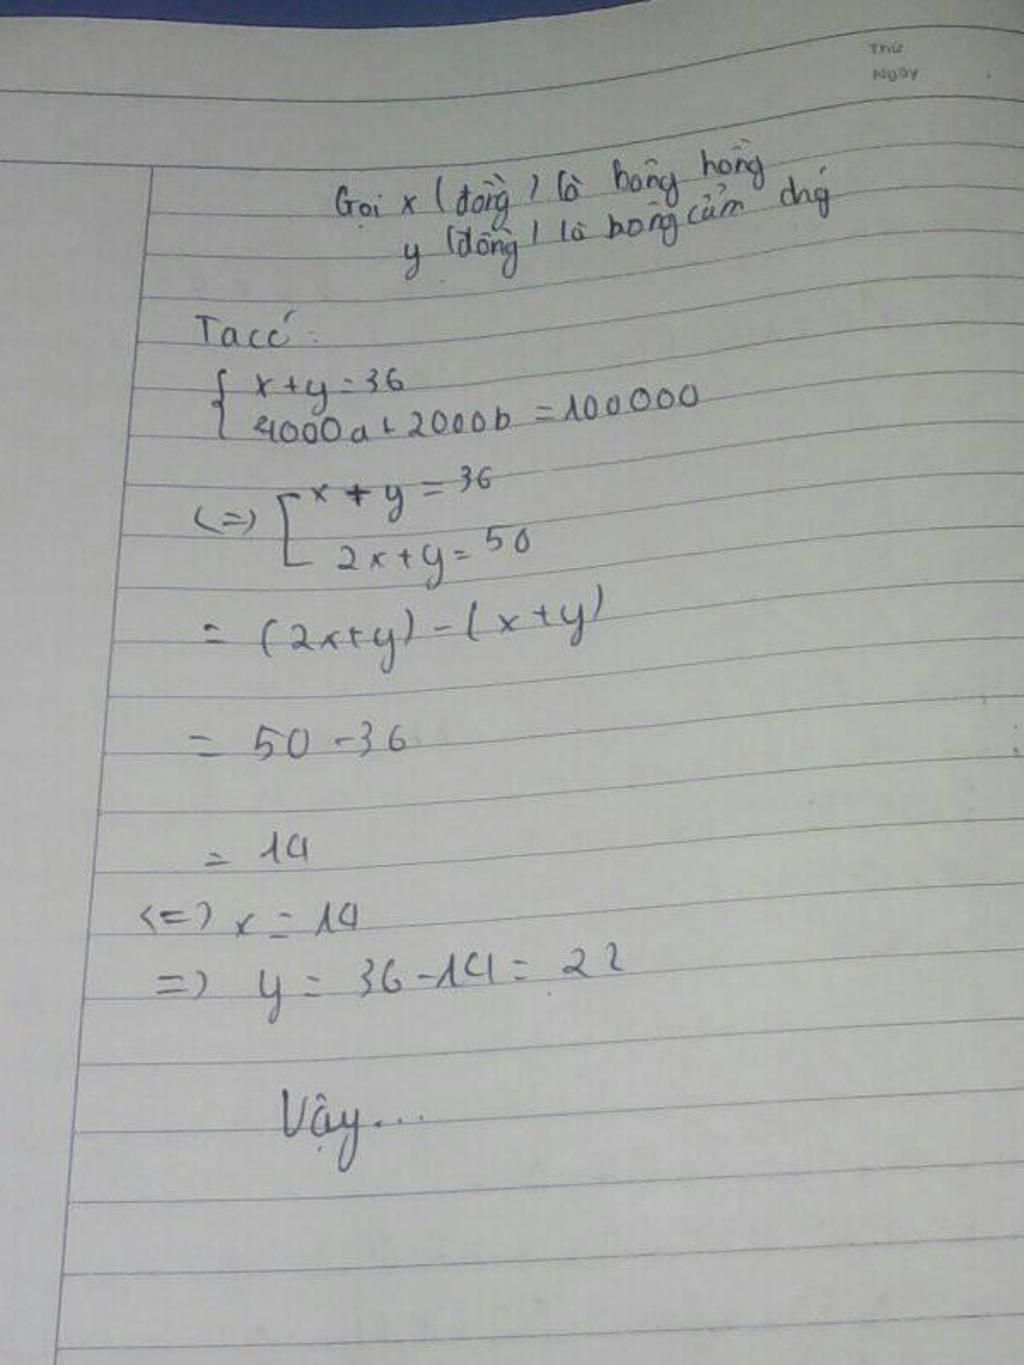 Thứ
Ngày
Gọi x (đồng) là bông hồng
y (đồng) là bông cẩm chướ
Ta có:
{ x + y = 36
4000a + 2000b = 100000
(=) [ x + y = 36
2x + y = 50
= (2x+y) - (x+y)
= 50 - 36
= 14
<=> x = 14
=> y = 36 - 14 = 22
Vậy...